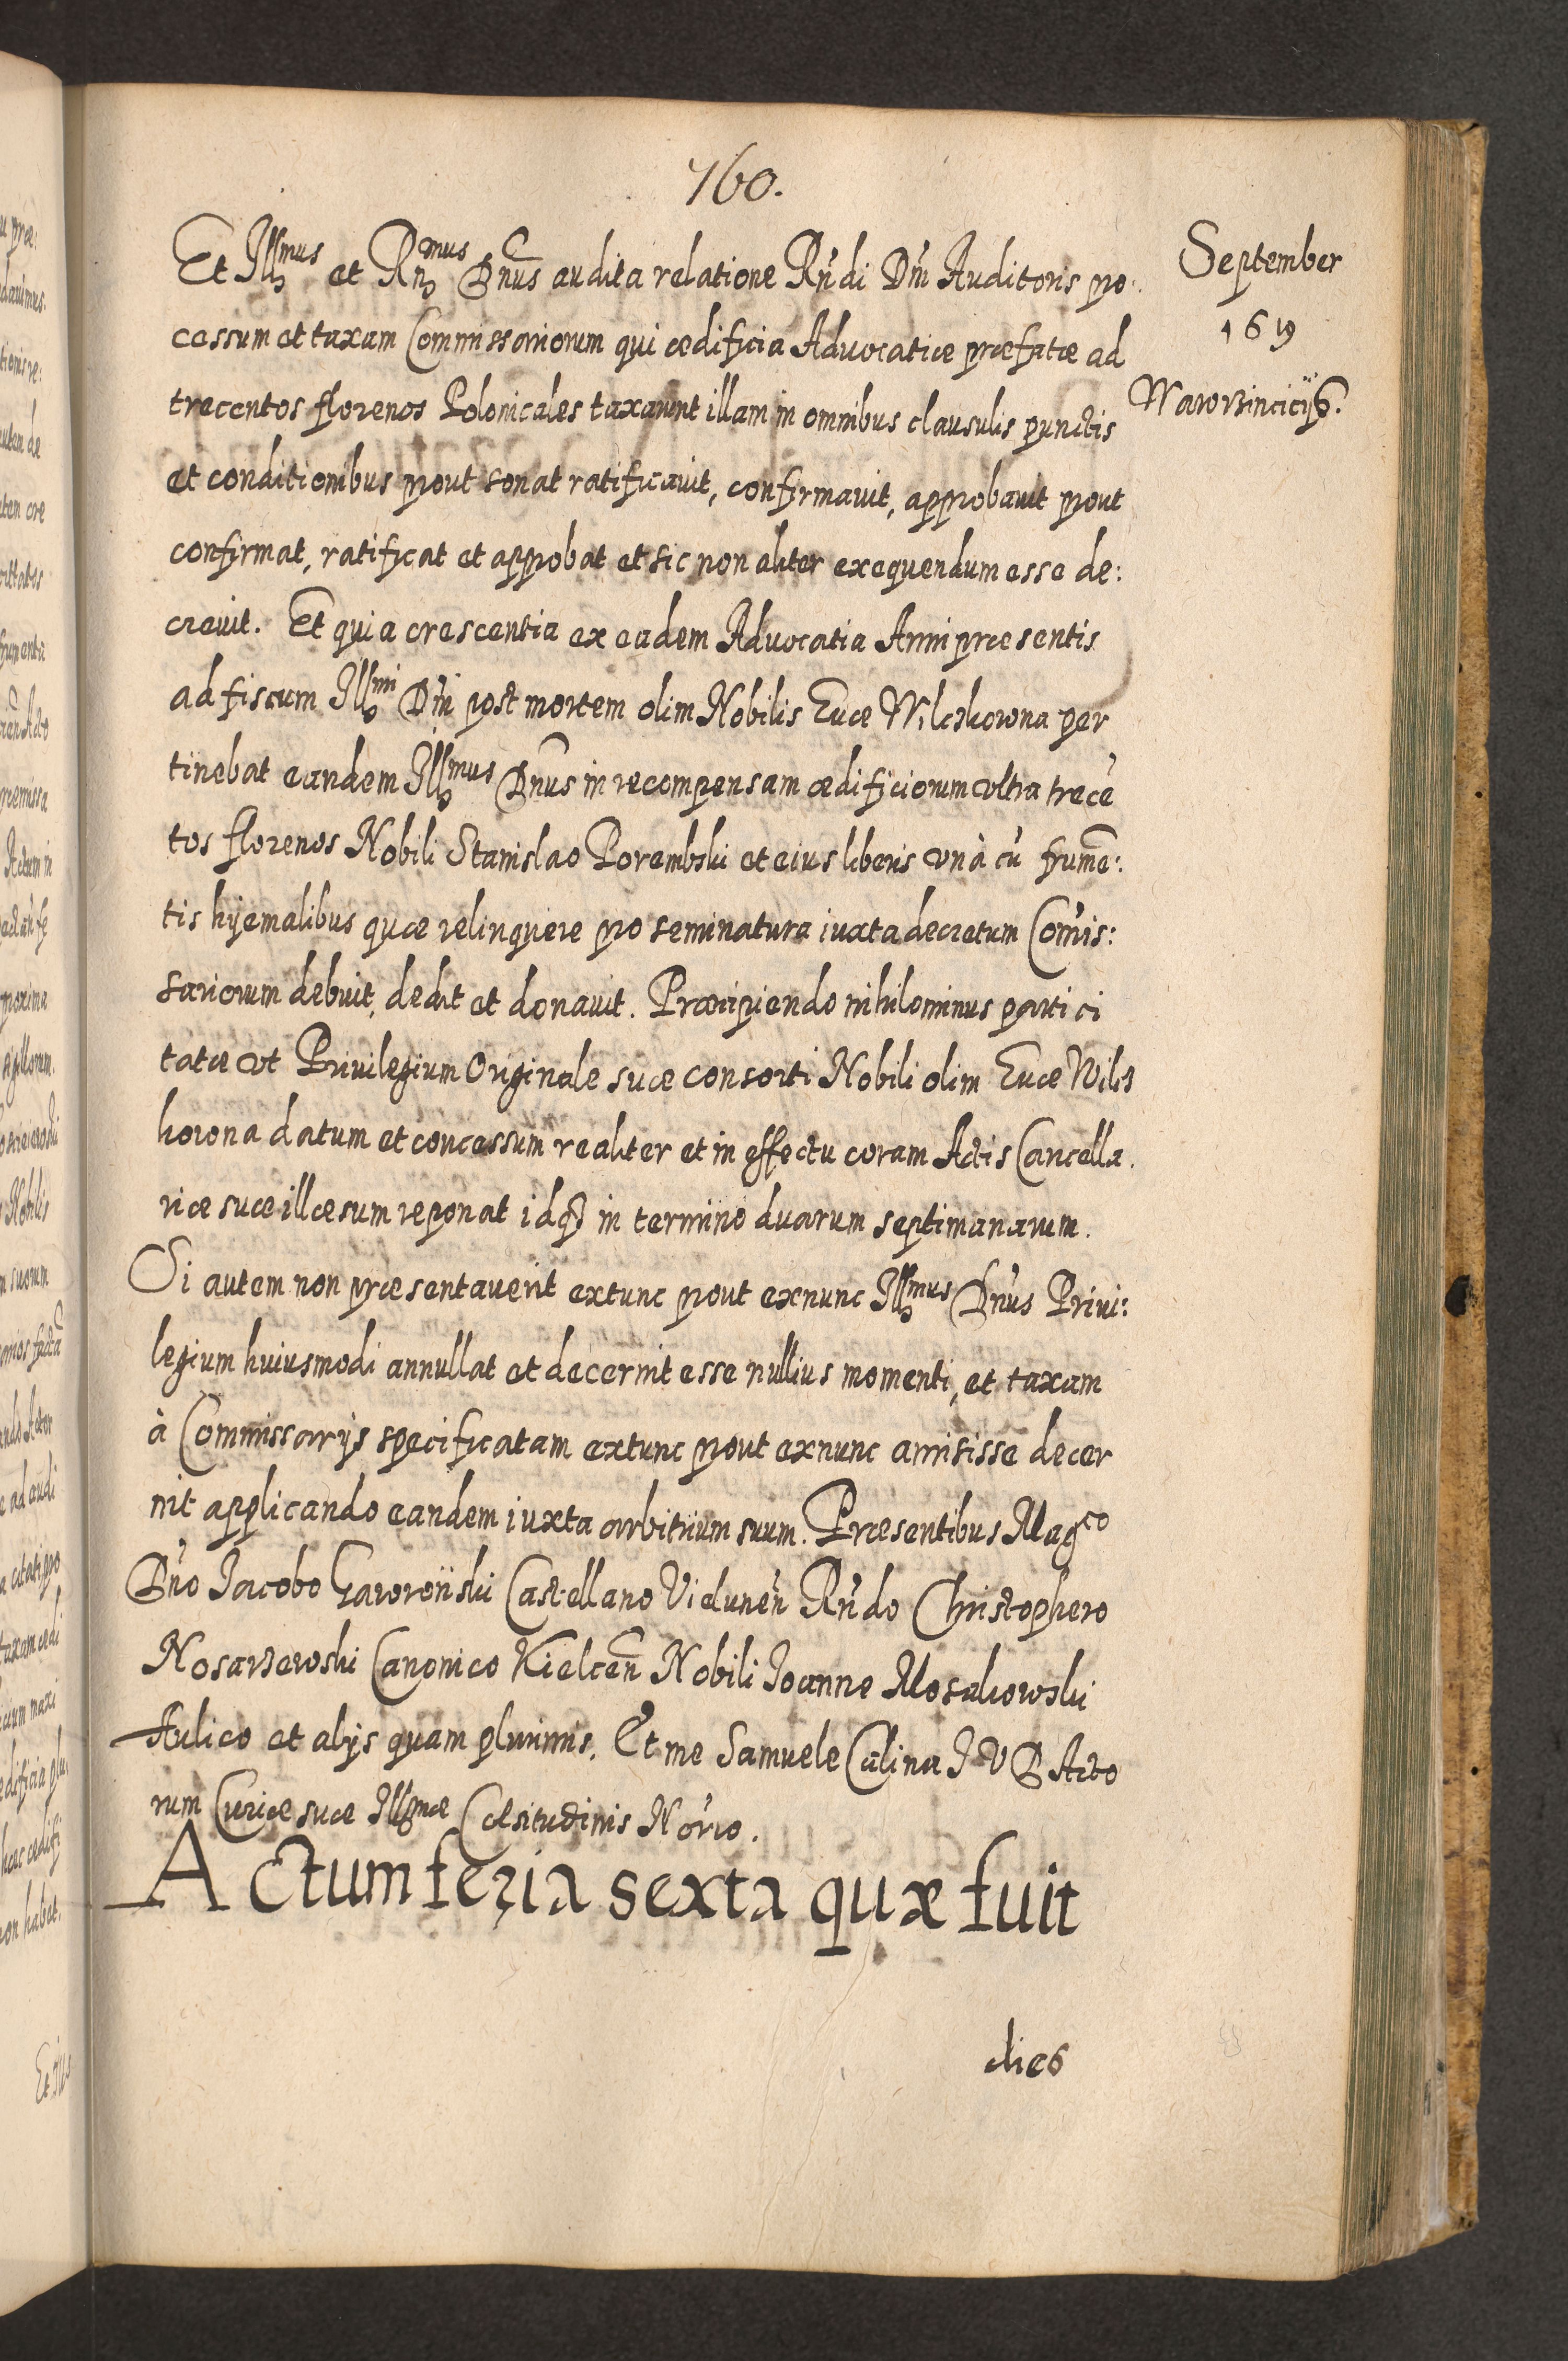 760.
September
1619
Wawrzinciciis.
Et Illmus et Rndmus Dnus audita relatione Rndi Dni Auditoris pro:
cessum et taxam Commissariorum qui ædificia Advocatiæ præfatæ ad
trecentos florenos Polonicales taxarunt illam in omnibus clausulis punctis
et conditionibus prout sonat ratificavit, confirmavit, approbavit prout
confirmat, ratificat et approbat et sic non aliter exequendum esse de:
crevit. Et quia crescentia ex eadem Advocatia Anni præsentis
ad fiscum Illmi Dni post mortem olim Nobilis Evæ Wilczkowna per
tinebat eandem Illmus Dnus in recompensam ædificiorum ultra trecē
tos florenos Nobili Stanislao Porembski et eius liberis unà cū frumē:
tis hyemalibus quæ relinquere pro seminatura iuxta decretum Comis:
sariorum debuit, dedit et donavit. Præcipiendo nihilominus parti ci
tatæ ut Privilegium Originale suæ consorti Nobili olim Evæ Wilcz
kowna datum et concessum realiter et in effectu coram Actis Cancella
riæ suæ illæsum reponat idq3 in termino duarum septimanarum.
Si autem non præsentaverit extunc prout exnunc Illmus Dnus Privi:
legium huiusmodi annullat et decernit esse nullius momenti, et taxam
à Commissarijs specificatam extunc prout exnunc amisisse decer
nit applicando eandem iuxta arbitrium suum. Præsentibus Magco
Dno Jacobo Gawronski Castellano Vielunen Rndo Christophero
Nosarzewski Canonico Kielcen Nobili Joanne Mosakowski
Aulico et alijs quam plurimis. Et me Samuele Calina J U D Acto
rum Curiæ suæ Illmæ Cæsitudinis Norio.
Actum feria sexta quæ fuit
dies